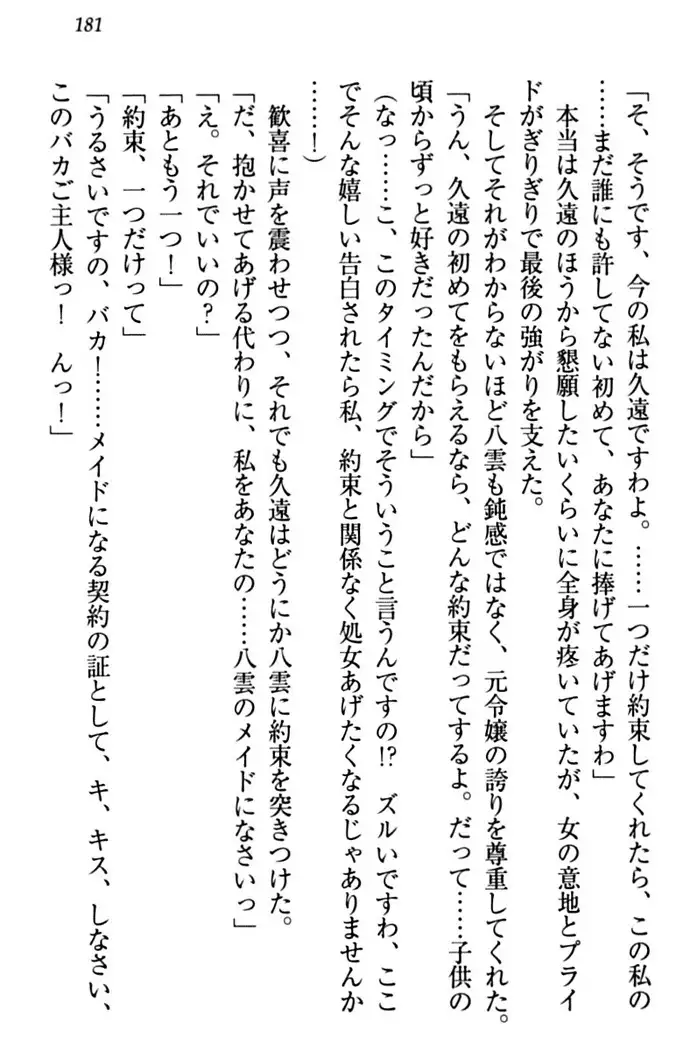 181
「そ、そうです、今の私は久遠ですわよ。……一つだけ約束してくれたら、この私の
……まだ誰にも許してない初めて、あなたに捧げてあげますわ」
本当は久遠のほうから懇願したいくらいに全身が疼いていたが、女の意地とプライ
ドがぎりぎりで最後の強がりを支えた。
そしてそれがわからないほど八雲も鈍感ではなく、元令嬢の誇りを尊重してくれた。
「うん、久遠の初めてをもらえるなら、どんな約束だってするよ。だって……子供の
頃からずっと好きだったんだから」
(なっ……こ、このタイミングでそういうこと言うんですの!? ズルいですわ、ここ
でそんな嬉しい告白されたら私、約束と関係なく処女あげたくなるじゃありませんか
……!)
歓喜に声を震わせつつ、それでも久遠はどうにか八雲に約束を突きつけた。
「だ、抱かせてあげる代わりに、私をあなたの……八雲のメイドになさいっ」
「え。それでいいの?」
「あともう一つ!」
「約束、一つだけって」
「うるさいですの、バカ!……メイドになる契約の証として、キ、キス、しなさい、
このバカご主人様っ! んっ!」